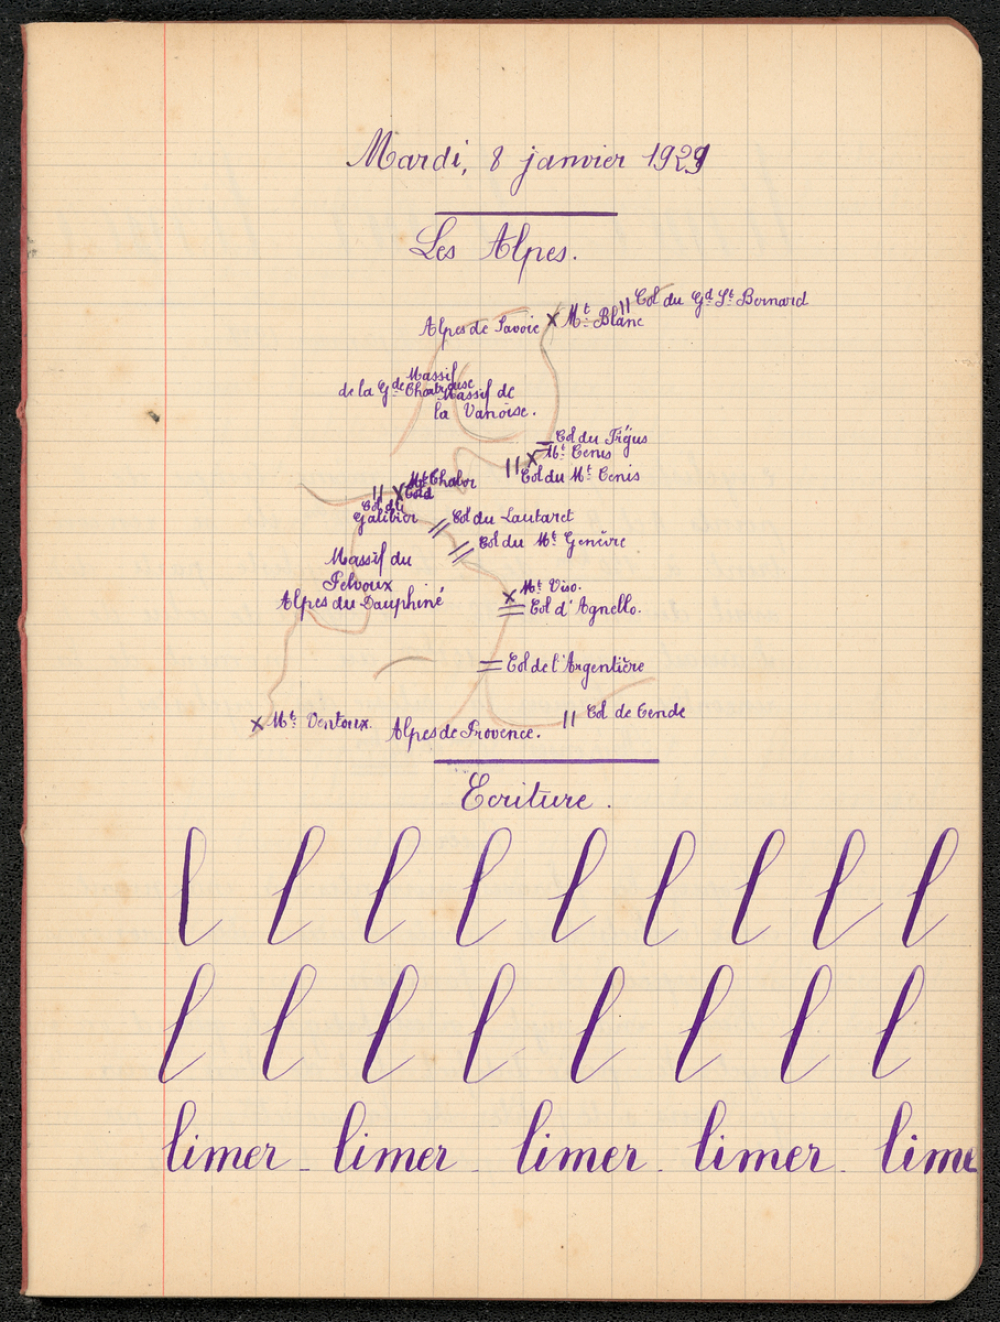 Mardi, 8 janvier 1929
Les Alpes.
Col du Gd St Bernard
Alpes de Savoie x Mt Blanc
Massif
de la Gde Chartreuse
Massif de
la Vanoise.
Col du Fréjus
Mt Cenis
Col du Mt Cenis
Mt Thabor
Col du
Galibier
Col du Lautaret
Col du Mt Genèvre
Massif du
Pelvoux
Alpes du Dauphiné
x Mt Viso.
Col d'Agnello.
Col de l'Argentière
Col de Tende
x Mt Ventoux.
Alpes de Provence.
Ecriture.
l l l l l l l l l
l l l l l l l l
limer - limer - limer - limer - lime